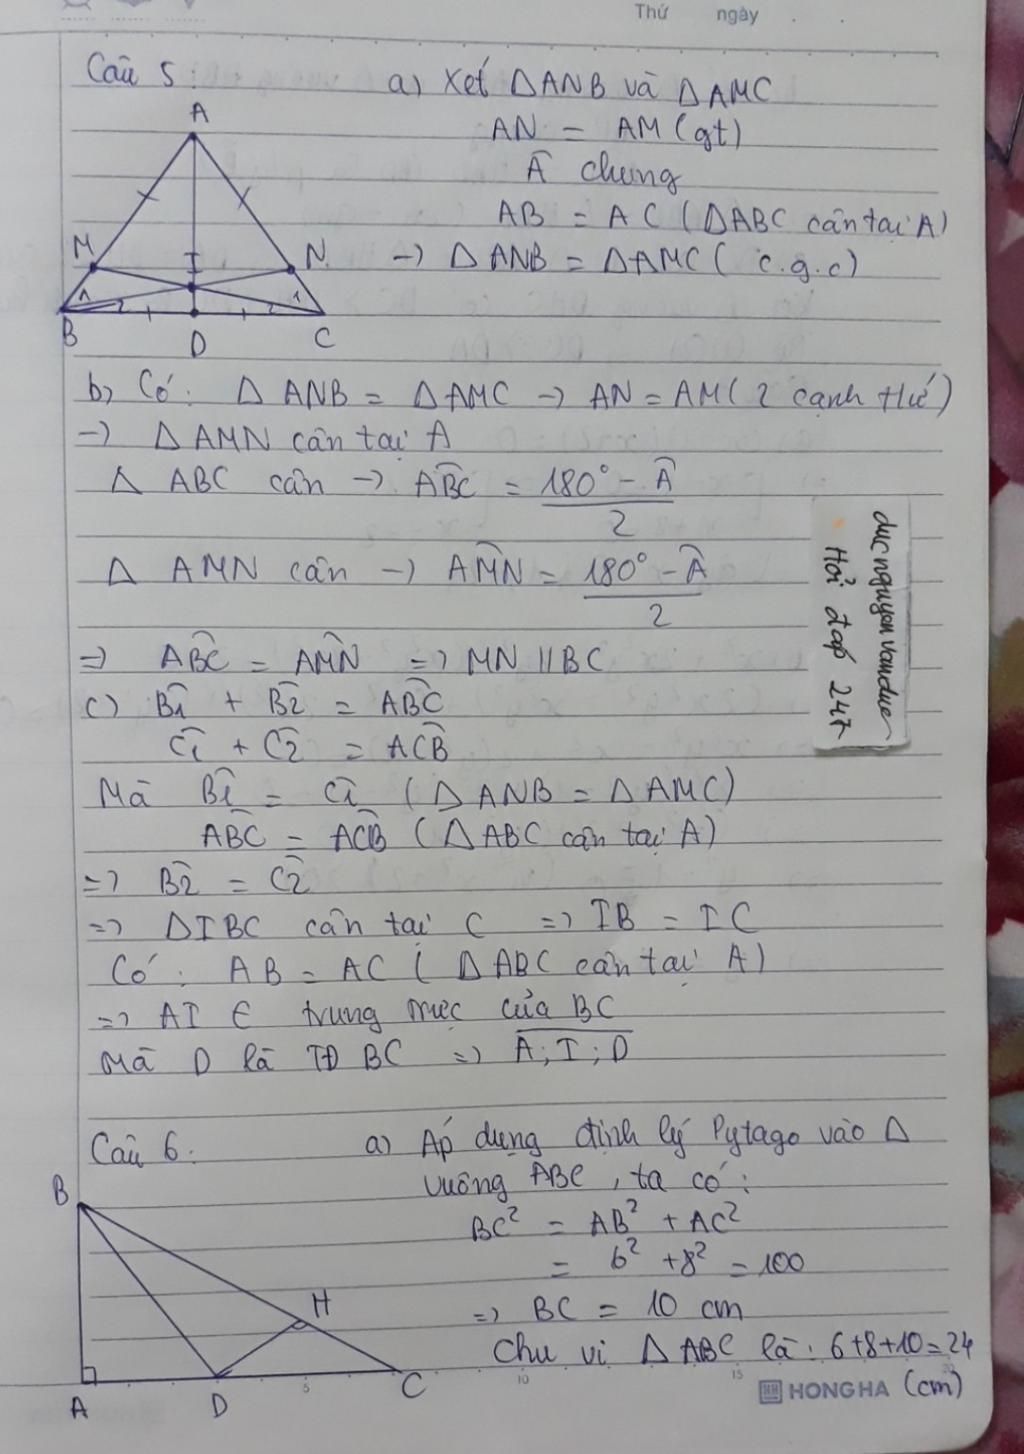 Thứ ngày . .
Câu 5: a) Xét ΔANB và ΔAMC
AN = AM (gt)
Â chung
AB = AC (ΔABC cân tại A)
→ ΔANB = ΔAMC (c.g.c)
A
M
I
N
1
2
2
1
B
D
C
b) Có: Δ ANB = Δ AMC → AN = AM (2 cạnh tứ)
→ Δ AMN cân tại A
Δ ABC cân → ABC^ = (180° - Â)/2
Δ AMN cân → AMN^ = (180° - Â)/2
=> ABC^ = AMN^ => MN // BC
c) B1^ + B2^ = ABC^
C1^ + C2^ = ACB^
Mà B1^ = C1^ (Δ ANB = Δ AMC)
ABC^ = ACB^ (Δ ABC cân tại A)
=> B2^ = C2^
=> ΔIBC cân tại C => IB = IC
Có: AB = AC (Δ ABC cân tại A)
=> AI ∈ trung trực của BC
Mà D là TĐ BC => A; I; D
ducnguyenvanduc
Hỏi đáp 247
Câu 6: a) Áp dụng định lý Pytago vào Δ
vuông ABC, ta có:
BC² = AB² + AC²
= 6² + 8² = 100
=> BC = 10 cm
Chu vi Δ ABC là: 6+8+10=24
(cm)
B
H
A
D
C
5 10 15 20
HONG HA